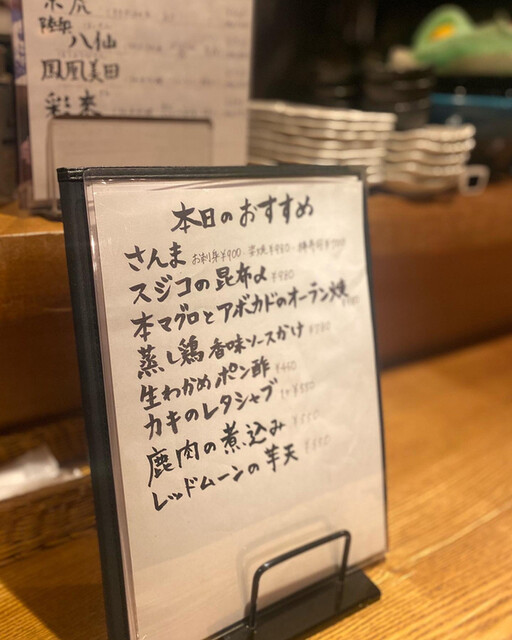 陸奥八仙
鳳凰美田
彩來
本日のおすすめ
さんま お刺身¥900
スジコの昆布〆 ¥980
本マグロとアボカドのオーラン焼
蒸し鶏 香味ソースかけ ¥580
生わかめポン酢 ¥460
カキのレタシャブ
鹿肉の煮込み ¥550
レッドムーンの芋天